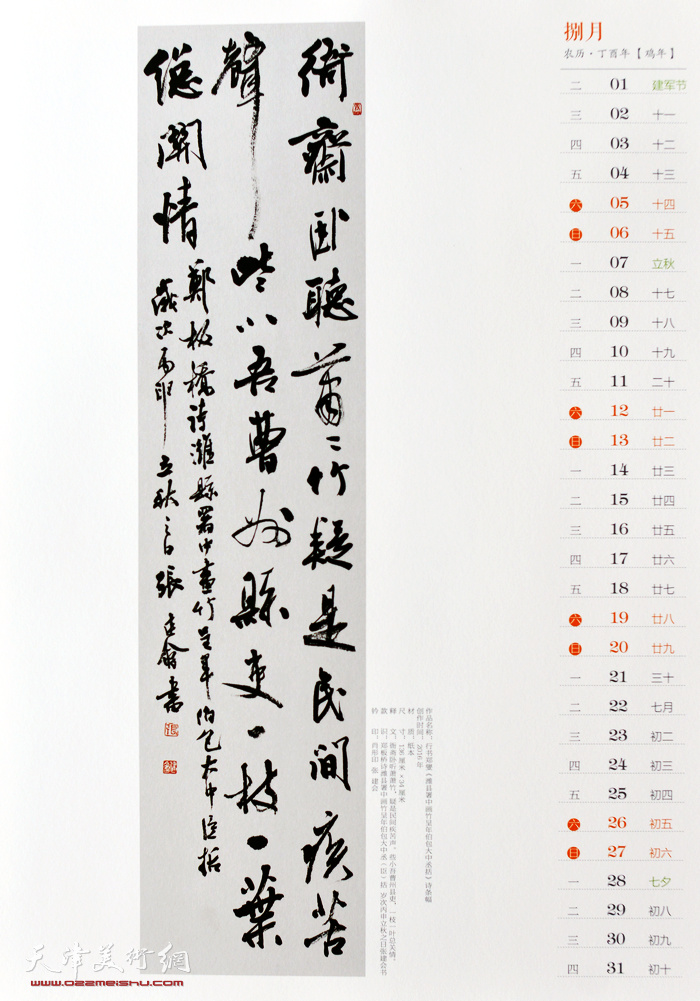 衙齋卧聽蕭〻竹疑是民間疾苦
聲些小吾曹州縣吏一枝一葉
總關情
鄭板橋詩濰縣署中畫竹呈年伯包大中丞括
歲次丙申立秋之日張建會書
作品名称：行书郑燮《潍县署中画竹呈年伯包大中丞括》诗条幅
创作时间：2016年
材　质：纸本
尺　寸：136厘米×34厘米
释　文：衙斋卧听萧萧竹，疑是民间疾苦声。些小吾曹州县吏，一枝一叶总关情。
款　识：郑板桥诗潍县署中画竹呈年伯包大中丞（臣）括 岁次丙申立秋之日张建会书
钤　印：肖形印 张 建会
捌月
农历·丁酉年【鸡年】
二 01 建军节
三 02 十一
四 03 十二
五 04 十三
六 05 十四
日 06 十五
一 07 立秋
二 08 十七
三 09 十八
四 10 十九
五 11 二十
六 12 廿一
日 13 廿二
一 14 廿三
二 15 廿四
三 16 廿五
四 17 廿六
五 18 廿七
六 19 廿八
日 20 廿九
一 21 三十
二 22 七月
三 23 初二
四 24 初三
五 25 初四
六 26 初五
日 27 初六
一 28 七夕
二 29 初八
三 30 初九
四 31 初十
天津美術網
www.022meishu.com